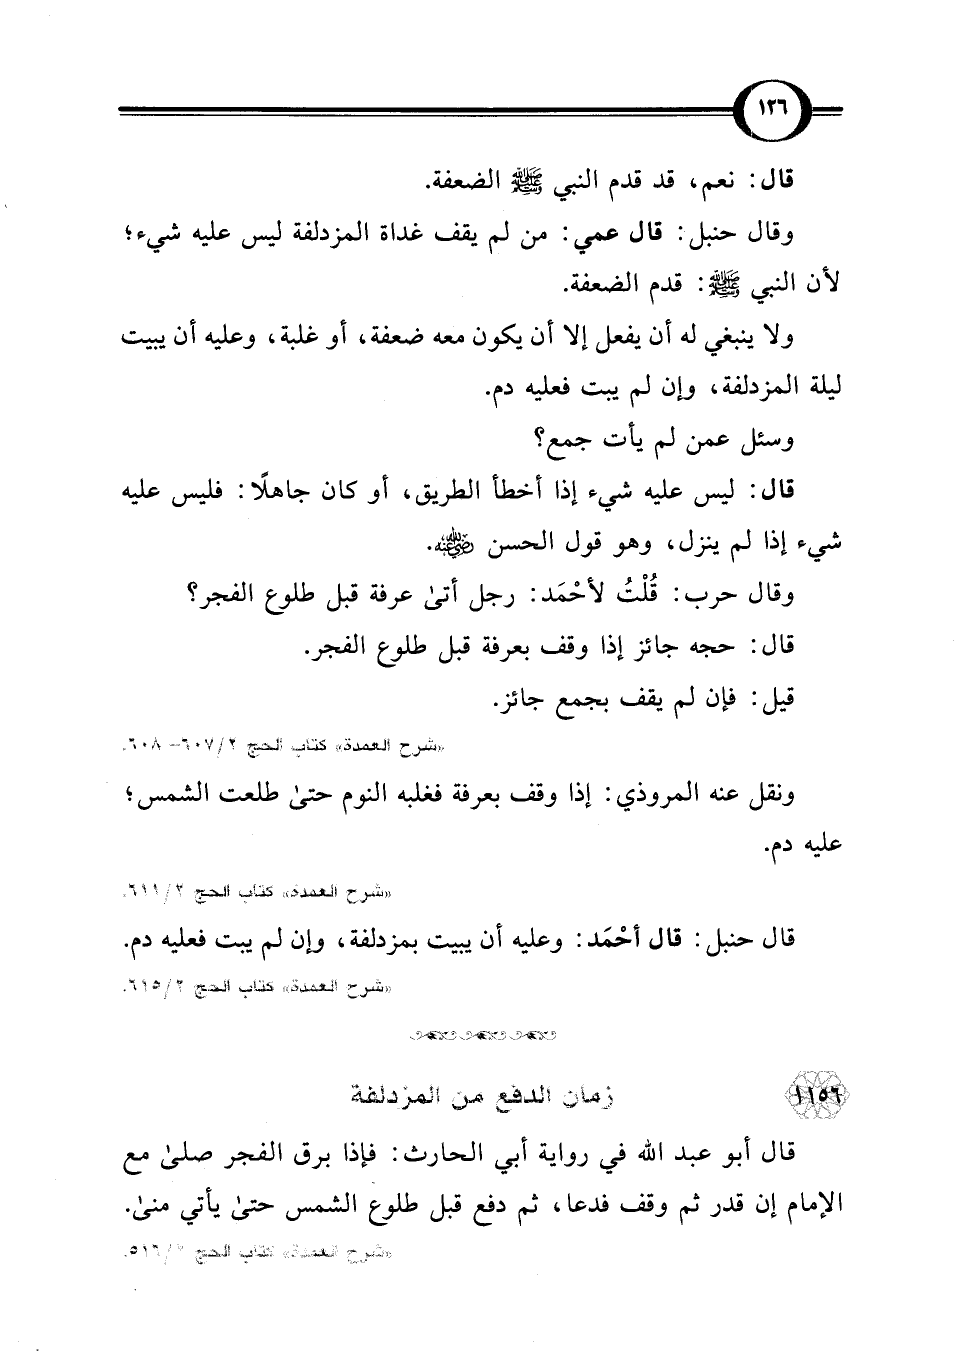 ١٢٦
قال: نعم، قد قدم النبي ﷺ الضعفة.
وقال حنبل: قال عمي: من لم يقف غداة المزدلفة ليس عليه شيء؛
لأن النبي ﷺ: قدم الضعفة.
ولا ينبغي له أن يفعل إلا أن يكون معه ضعفة، أو غلبة، وعليه أن يبيت
ليلة المزدلفة، وإن لم يبت فعليه دم.
وسئل عمن لم يأت جمع؟
قال: ليس عليه شيء إذا أخطأ الطريق، أو كان جاهلًا: فليس عليه
شيء إذا لم ينزل، وهو قول الحسن رضي الله عنه.
وقال حرب: قُلْتُ لأحْمَد: رجل أتىٰ عرفة قبل طلوع الفجر؟
قال: حجه جائز إذا وقف بعرفة قبل طلوع الفجر.
قيل: فإن لم يقف بجمع جائز.
«شرح العمدة» كتاب الحج ٢/ ٦٠٧- ٦٠٨.
ونقل عنه المروذي: إذا وقف بعرفة فغلبه النوم حتىٰ طلعت الشمس؛
عليه دم.
«شرح العمدة» كتاب الحج ٢/ ٦١١.
قال حنبل: قال أحْمَد: وعليه أن يبيت بمزدلفة، وإن لم يبت فعليه دم.
«شرح العمدة» كتاب الحج ٢/ ٦١٥.
١١٥٦ زمان الدفع من المزدلفة
قال أبو عبد الله في رواية أبي الحارث: فإذا برق الفجر صلىٰ مع
الإمام إن قدر ثم وقف فدعا، ثم دفع قبل طلوع الشمس حتىٰ يأتي منىٰ.
«شرح العمدة» كتاب الحج ٢/ ٥١٦.